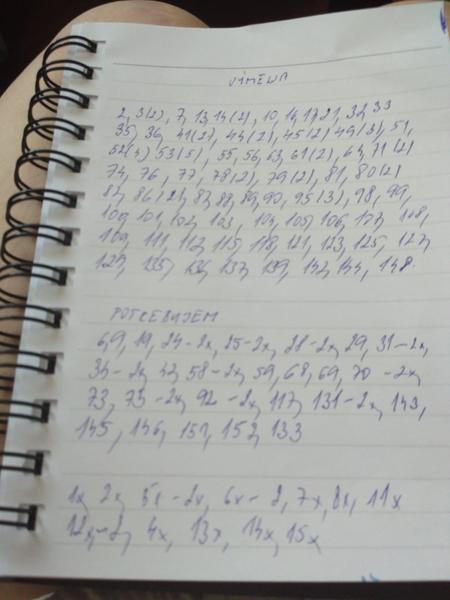 VÝMENA
2, 3(2), 7, 13, 14(2), 10, 14, 17, 21, 32, 33
35, 36, 41(2), 44(2), 45(2) 49(3), 51,
52(4) 53(5), 55, 56, 63, 61(2), 64, 71(2)
74, 76, 77, 78(2), 79(2), 81, 80(2)
86(2), 87, 88, 89, 90, 95(3), 98, 99,
100, 101, 102, 103, 104, 105, 106, 108,
109, 111, 112, 115, 118, 121, 123, 125, 127,
129, 135, 136, 137, 139, 142, 144, 148.
POTREBUJEM
6, 9, 19, 24-2x, 25-2x, 28-2x, 29, 31-2x,
34-2x, 42, 58-2x, 59, 68, 69, 70-2x,
73, 75-2x, 92-2x, 117, 131-2x, 143,
145, 146, 151, 152, 133
1x, 2x, 5x-2x, 6x-2, 7x, 8x, 11x
12x-2, 4x, 13x, 14x, 15x